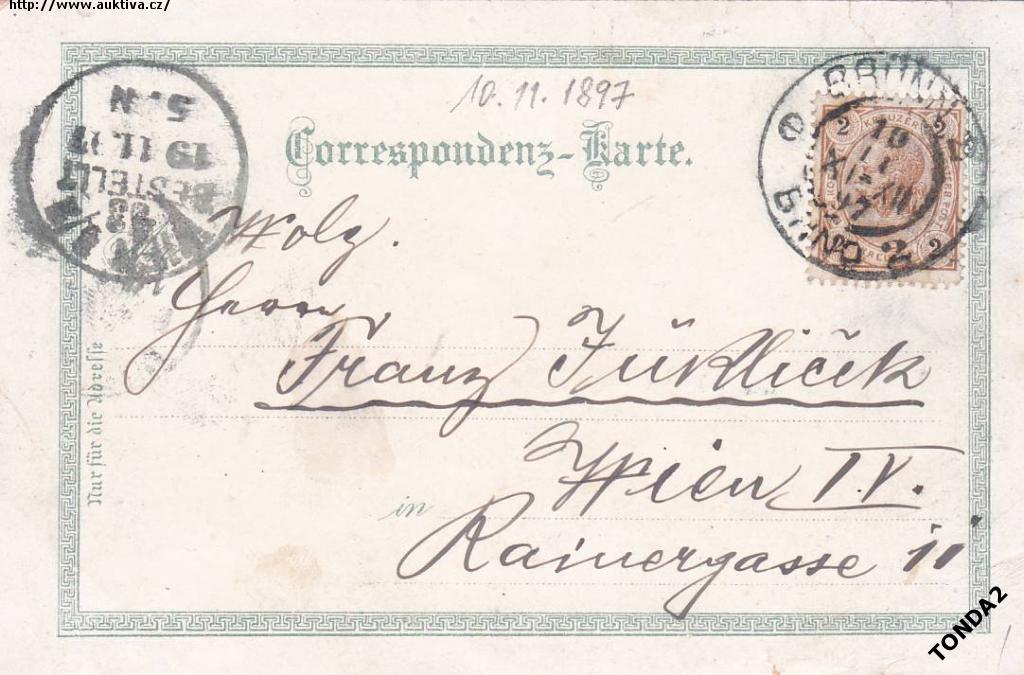 http://www.auktiva.cz/
10.11.1897
Correspondenz-Karte.
BRÜNN
2 2
BRNO 2
WIEN
BESTELLT
19.11.97
5. N
Herrn
Franz Jükliček
Wien IV.
in
Rainergasse 11
Nur für die Adresse
TONDA2